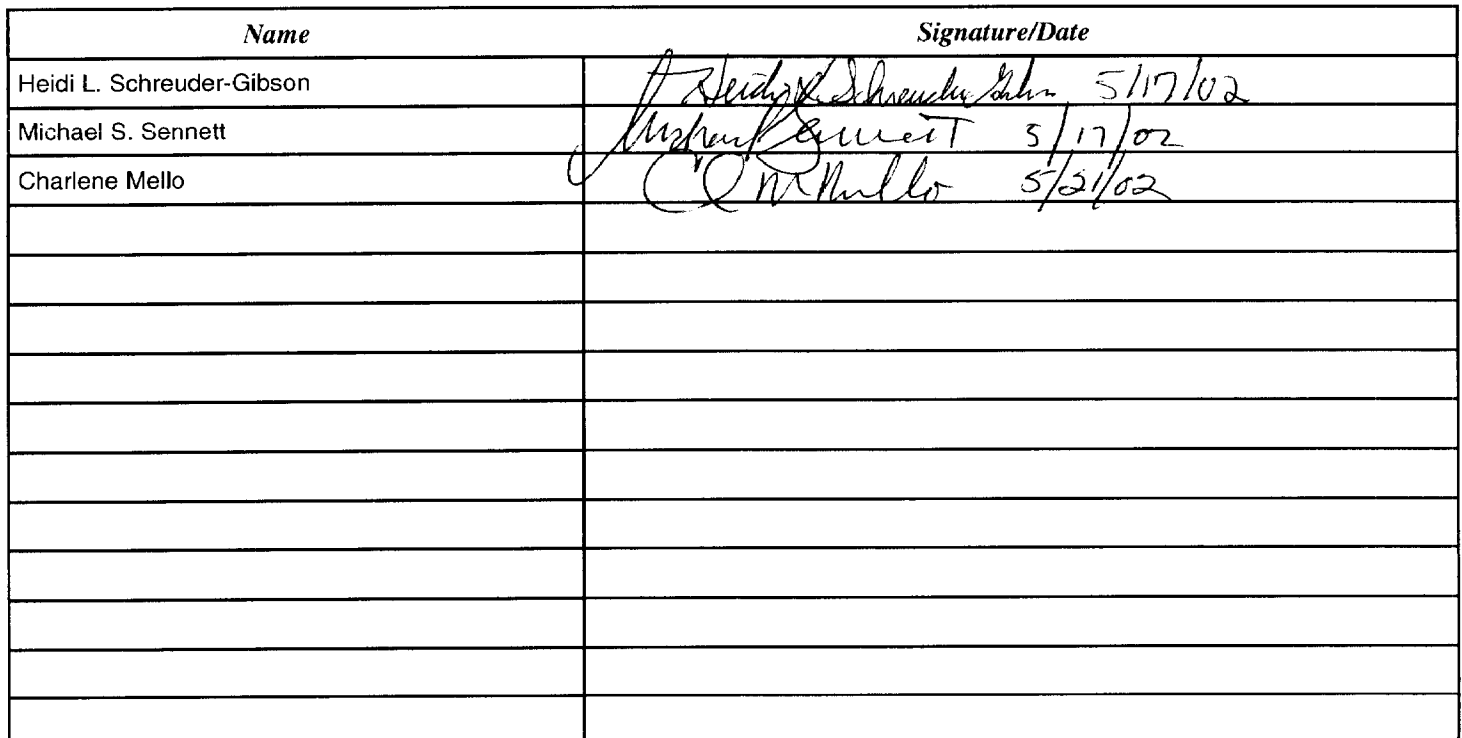 Name Signature/Date
Heidi L. Schreuder-Gibson Heidi L. Schreuder-Gibson 5/17/02
Michael S. Sennett Michael Sennett 5/17/02
Charlene Mello C M Mello 5/21/02